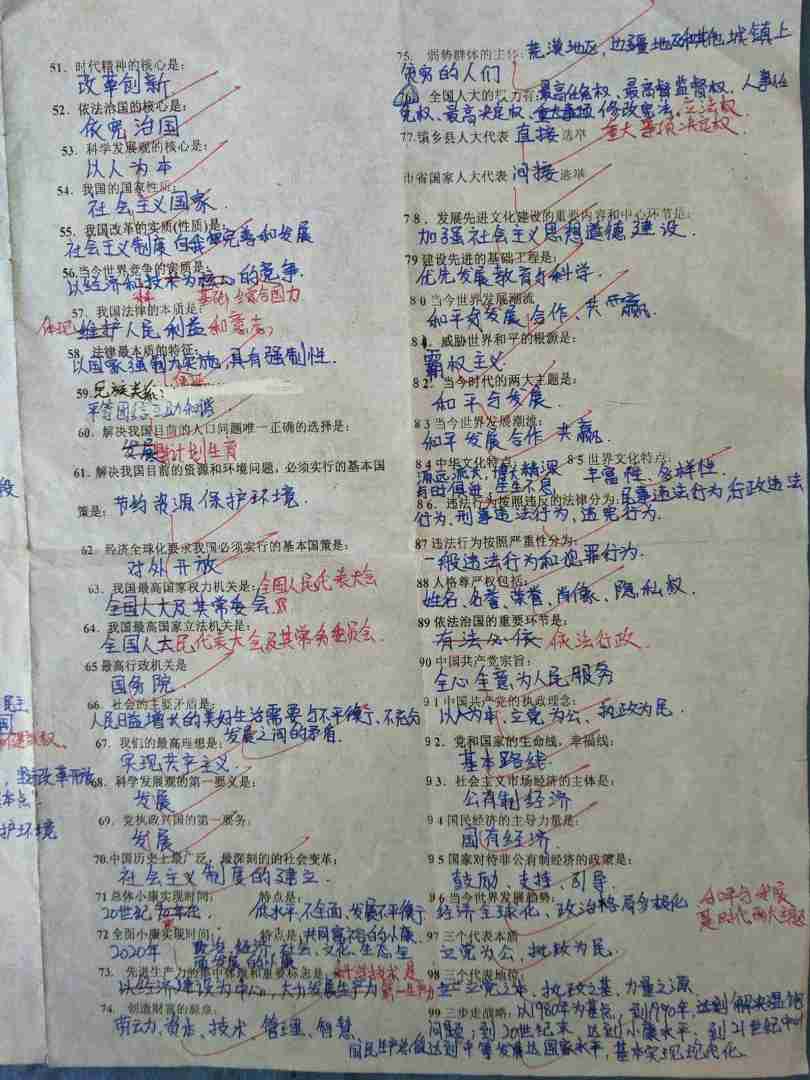 51. 时代精神的核心是:
改革创新
52. 依法治国的核心是:
依宪治国
53. 科学发展观的核心是:
以人为本
54. 我国的国家性质:
社会主义国家
55. 我国改革的实质(性质)是:
社会主义制度自我完善和发展
56.当今世界竞争的实质是:
以经济和技术为核心的竞争.
基础 综合国力
57. 我国法律的本质是:
体现 维护人民利益和意志
58. 法律最本质的特征:
以国家强制力实施,具有强制性.
保证
59. 民族关系:
平等团结互助和谐
60. 解决我国目前的人口问题唯一正确的选择是:
发展 计划生育
61. 解决我国目前的资源和环境问题,必须实行的基本国
策是: 节约资源 保护环境.
62. 经济全球化要求我国必须实行的基本国策是:
对外开放
63. 我国最高国家权力机关是: 全国人民代表大会
全国人大及其常委会
64. 我国最高国家立法机关是:
全国人大民代表大会及其常务委员会.
65 最高行政机关是
国务院
66. 社会的主要矛盾是:
人民日益增长的美好生活需要与不平衡、不充分
发展之间的矛盾.
67. 我们的最高理想是:
实现共产主义.
68. 科学发展观的第一要义是:
发展
69. 党执政兴国的第一要务:
发展
70.中国历史上最广泛、最深刻的的社会变革:
社会主义制度的建立.
71 总体小康实现时间: 特点是:
20世纪 低水平、不全面、发展不平衡
72 全面小康实现时间: 特点是:共同富裕的小康
2020年 政治、经济、社会、文化、生态全
面发展的小康
73. 先进生产力的集中体现和重要标志是: 科学技术是
以经济建设为中心,大力发展生产力 第一生产力
74. 创造财富的源泉:
劳动力、资本、技术、管理、智慧
75. 弱势群体的主体: 荒漠地区,边疆地区和其他城镇上
贫穷的人们
76 全国人大的权力有: 最高任免权、最高监督权、人事任
免权、最高决定权、修改宪法、立法权.
77.镇乡县人大代表 直接 选举 重大事项决定权.
市省国家人大代表 间接 选举
78. 发展先进文化建设的重要内容和中心环节是:
加强社会主义思想道德建设.
79 建设先进的基础工程是:
优先发展教育和科学.
80 当今世界发展潮流
和平与发展 合作、共赢.
81. 威胁世界和平的根源是:
霸权主义.
82. 当今时代的两大主题是:
和平与发展.
83 当今世界发展潮流:
和平 发展 合作 共赢.
84 中华文化特点: 85 世界文化特点:
源远流长,博大精深 丰富性、多样性.
生生不息
86. 违法行为按照违反的法律分为: 民事违法行为 行政违法
行为,刑事违法行为,违宪行为.
87 违法行为按照严重性分为:
一般违法行为和犯罪行为.
88 人格尊严权包括:
姓名、名誉、荣誉、肖像、隐私权.
89 依法治国的重要环节是:
有法必依 依法行政.
90 中国共产党宗旨:
全心全意为人民服务
91 中国共产党的执政理念:
以人为本,立党为公、执政为民.
92. 党和国家的生命线、幸福线:
基本路线.
93. 社会主义市场经济的主体是:
公有制经济
94 国民经济的主导力量是:
国有经济.
95 国家对待非公有制经济的政策是:
鼓励、支持、引导.
96 当今世界发展趋势:
经济全球化、政治格局多极化 和平与发展
是时代两大主题
97 三个代表本质
立党为公、执政为民.
98 三个代表地位:
立党之本、执政之基、力量之源
99 三步走战略: 以1980年为基点,到1990年,达到解决温饱
问题;到20世纪末,达到小康水平,到21世纪中
国民生产总值达到中等发达国家水平,基本实现现代化.
段
民主
国
,坚持改革开放
本点
护环境